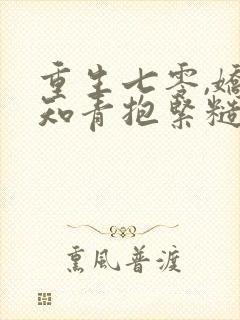 重生七零,嬌
知青抱緊糙
熏風普渡